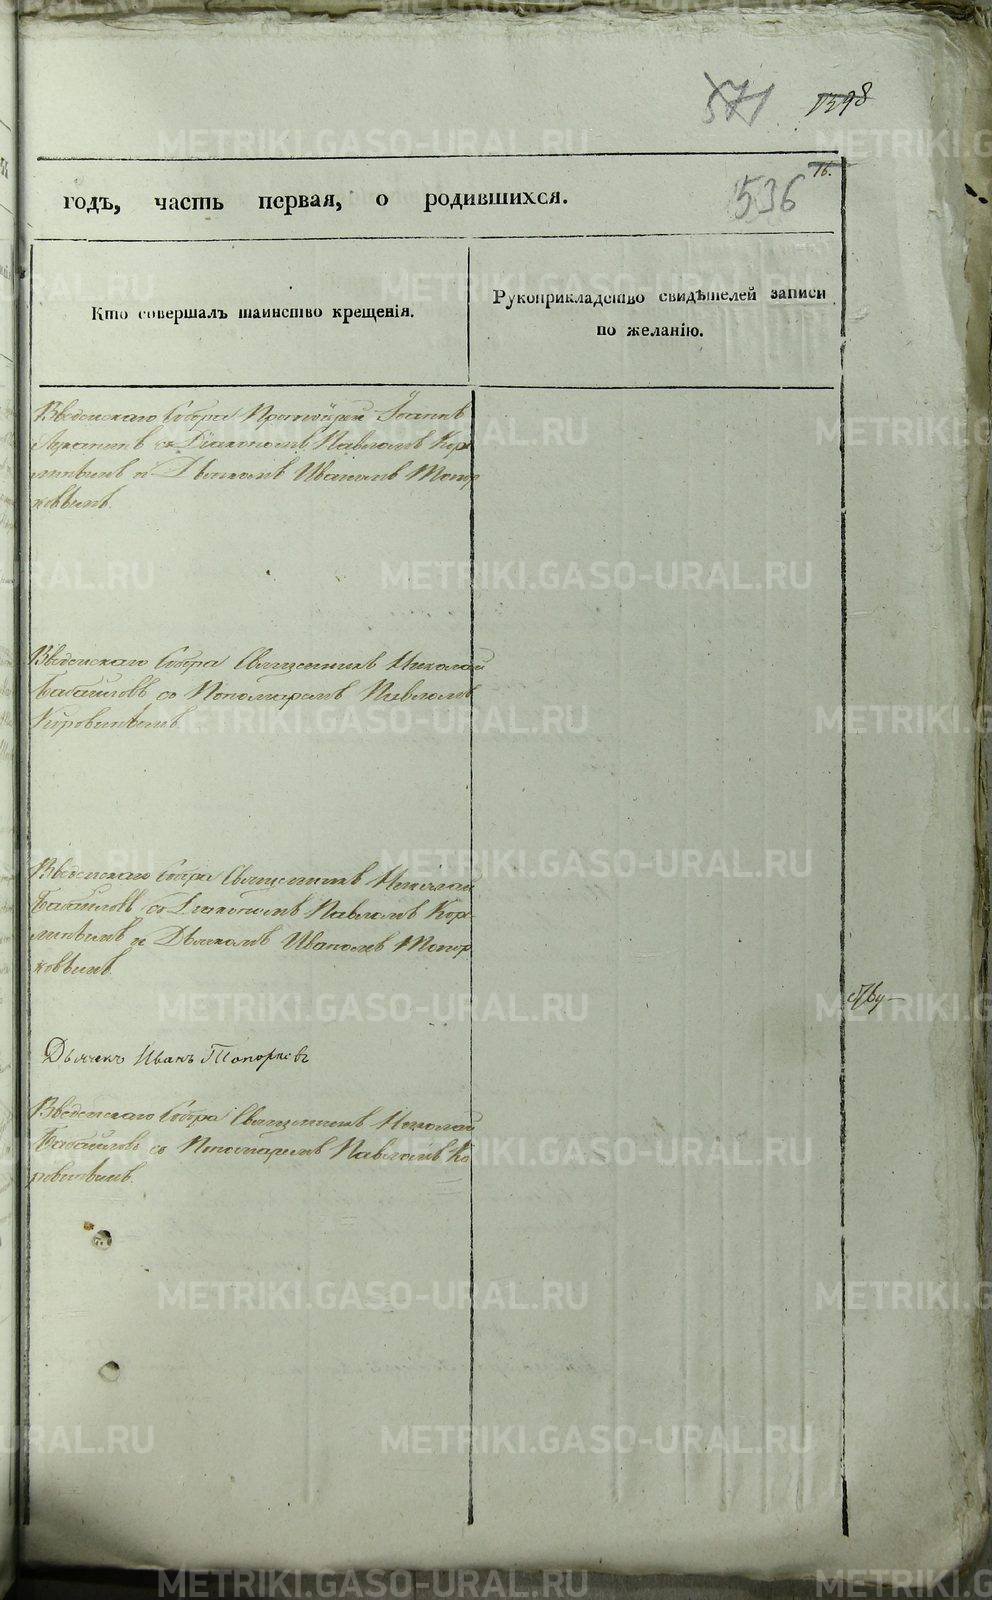 571 1398
16.
годъ, часть первая, о родившихся. 536
Кто совершалъ таинство крещенія.
Рукоприкладство свидѣтелей записи
по желанію.
Введенскаго Собора Протоіерей Іоаннъ
съ Діакономъ Павломъ Кор
и Дьячкомъ Иваномъ Топор
ковымъ.
Введенскаго Собора Священникъ Николай
Бабаиловъ со Пономаремъ Павломъ
Коровинымъ
Введенскаго Собора Священникъ Николай
Бабаиловъ со Діакономъ Павломъ Кор-
и Дьячкомъ Иваномъ Топор
ковымъ.
Дьячекъ Иванъ Топорковъ
Введенскаго Собора Священникъ Николай
Бабаиловъ со Пономаремъ Павломъ Ко
METRIKI.GASO-URAL.RU